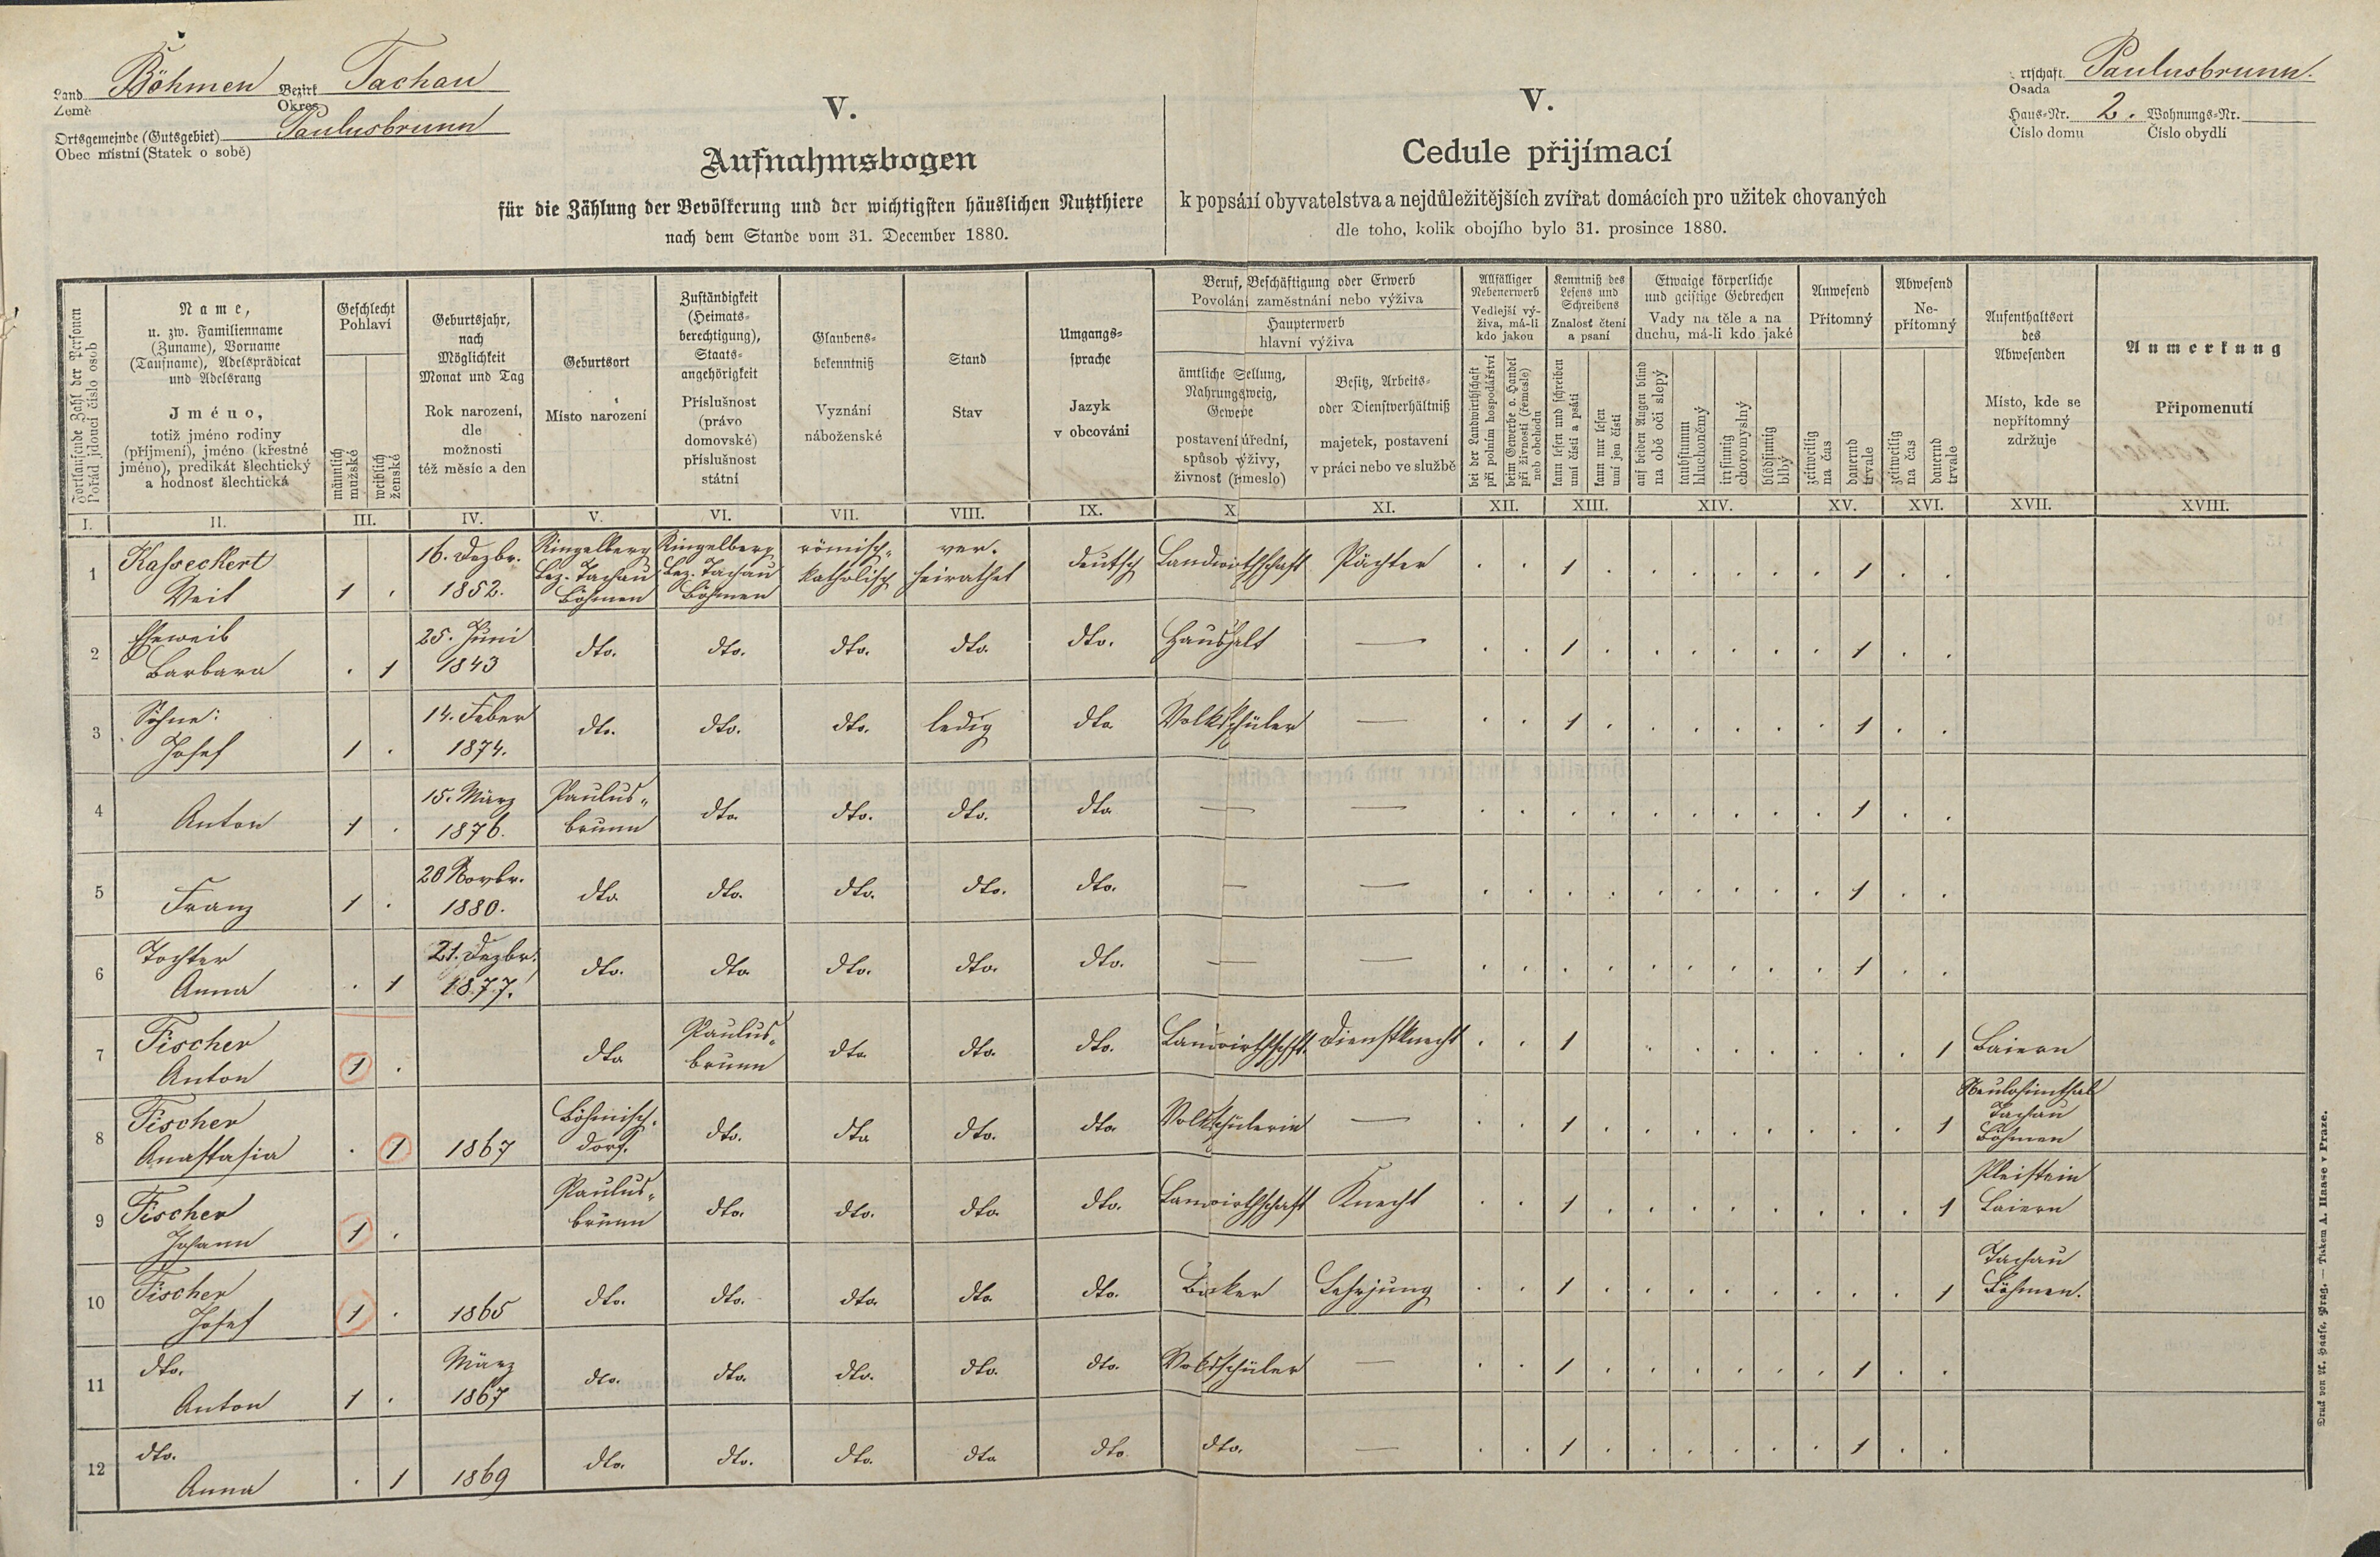 Land Böhmen Bezirk Tachau
Země Okres
Ortsgemeinde (Gutsgebiet) Paulusbrunn
Obec místní (Statek o sobě)
V.
Aufnahmsbogen
für die Zählung der Bevölkerung und der wichtigsten häuslichen Nutzthiere
nach dem Stande vom 31. December 1880.
V.
Cedule přijímací
k popsání obyvatelstva a nejdůležitějších zvířat domácích pro užitek chovaných
dle toho, kolik obojího bylo 31. prosince 1880.
rtschaft Paulusbrunn.
Osada
Haus-Nr. 2. Wohnungs-Nr.
Číslo domu Číslo obydlí
Fortlaufende Zahl der Personen
Pořád jdoucí číslo osob
Name,
u. zw. Familienname
(Zuname), Vorname
(Taufname), Adelsprädicat
und Adelsrang
Jméno,
totiž jméno rodiny
(příjmení), jméno (křestné
jméno), predikát šlechtický
a hodnosť šlechtická
Geschlecht
Pohlaví
männlich
mužské
weiblich
ženské
Geburtsjahr,
nach
Möglichkeit
Monat und Tag
Rok narození,
dle
možnosti
též měsíc a den
Geburtsort
Místo narození
Zuständigkeit
(Heimats-
berechtigung),
Staats-
angehörigkeit
Příslušnost
(právo
domovské)
příslušnost
státní
Glaubens-
bekenntniß
Vyznání
náboženské
Stand
Stav
Umgangs-
sprache
Jazyk
v obcováni
Beruf, Beschäftigung oder Erwerb
Povolání zaměstnání nebo výživa
Haupterwerb
hlavní výživa
ämtliche Stellung,
Nahrungszweig,
Gewerbe
postavení úřední,
spůsob výživy,
živnosť (řemeslo)
Besitz, Arbeits-
oder Dienstverhältniß
majetek, postavení
v práci nebo ve službě
Allfälliger
Nebenerwerb
Vedlejší vý-
živa, má-li
kdo jakou
bei der Landwirthschaft
při polním hospodářství
beim Gewerbe o. Handel
při živnosti (řemesle)
neb obchodu
Kenntniß des
Lesens und
Schreibens
Znalosť čtení
a psaní
kann lesen und schreiben
umí čísti a psáti
kann nur lesen
umí jen čísti
Etwaige körperliche
und geistige Gebrechen
Vady na těle a na
duchu, má-li kdo jaké
auf beiden Augen blind
na obě oči slepý
taubstumm
hluchoněmý
irrsinnig
choromyslný
blödsinnig
blbý
Anwesend
Přítomný
zeitweilig
na čas
dauernd
trvale
Abwesend
Ne-
přítomný
zeitweilig
na čas
dauernd
trvale
Aufenthaltsort
des
Abwesenden
Místo, kde se
nepřítomný
zdržuje
Anmerkung
Připomenutí
I. II. III. IV. V. VI. VII. VIII. IX. X XI. XII. XIII. XIV. XV. XVI. XVII. XVIII.
1 Kasseckert Veit 1 . 16. Dezbr. 1852. Ringelberg Bez. Tachau Böhmen Ringelberg Bez. Tachau Böhmen römisch- katholisch ver- heirathet deutsch Landwirthschaft Pächter . . 1 . . . . . . 1 . .
2 Eheweib Barbara . 1 25. Juni 1843 dto. dto. dto. dto. dto. Haushalt — . . 1 . . . . . . 1 . .
3 Söhne: Josef 1 . 14. Feber 1874. dto. dto. dto. ledig dto. Volksschüler — . . 1 . . . . . . 1 . .
4 Anton 1 . 15. März 1876. Paulus- brunn dto. dto. dto. dto. — — . . . . . . . . . 1 . .
5 Franz 1 . 20 Novbr. 1880. dto. dto. dto. dto. dto. — — . . . . . . . . . 1 . .
6 Tochter Anna . 1 21. Dezbr. 1877. dto. dto. dto. dto. dto. — — . . . . . . . . . 1 . .
7 Fischer Anton 1 . dto. Paulus- brunn dto. dto. dto. Landwirthschft. Dienstknecht . . 1 . . . . . . . 1 Baiern
8 Fischer Anastasia . 1 1867 Böhmisch- dorf. dto. dto. dto. dto. Volksschülerin — . . 1 . . . . . . . . 1 Neulosimthal Tachau Böhmen
9 Fischer Johann 1 . Paulus- brunn dto. dto. dto. dto. Landwirthschaft Knecht . . 1 . . . . . . . . 1 Pleistein Baiern
10 Fischer Josef 1 . 1865 dto. dto. dto. dto. dto. Bäcker Lehrjung . . 1 . . . . . . . . 1 Tachau Böhmen.
11 dto. Anton 1 . März 1867 dto. dto. dto. dto. dto. Volksschüler — . . 1 . . . . . . 1 . .
12 dto. Anna . 1 1869 dto. dto. dto. dto. dto. dto. — . . 1 . . . . . . 1 . .
Druck von A. Haase, Prag. — Tiskem A. Haase v Praze.